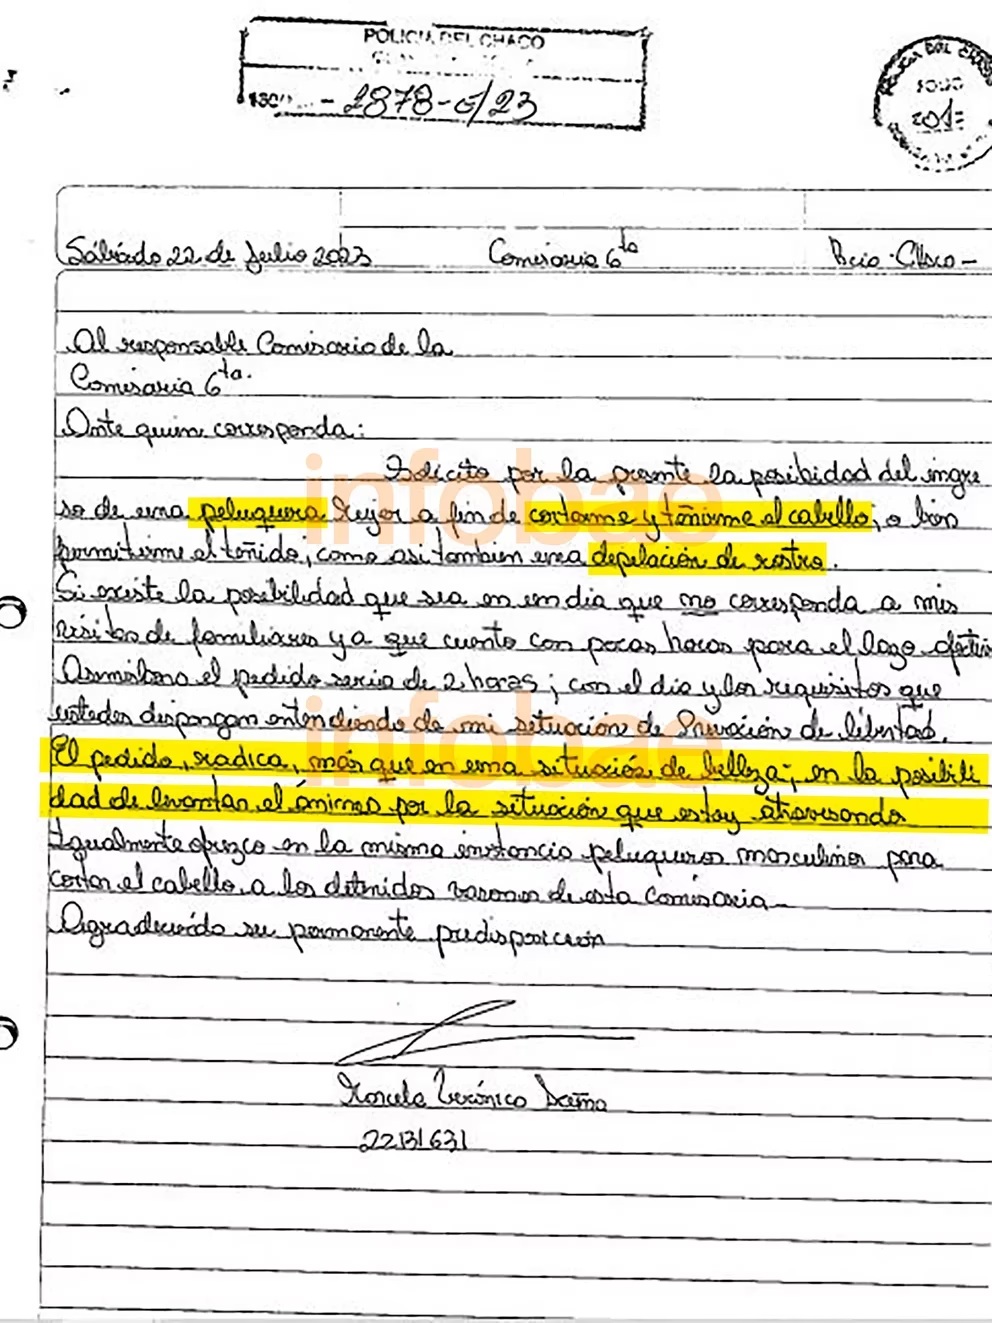 POLICIA DEL CHACO
- 2878-E/23
POLICIA DEL CHACO
FOLIO
201
Sábado 22 de Julio 2023 Comisaria 6ta Rcia - Chaco -
Al responsable Comisario de la
Comisaria 6ta.
Ante quien corresponda:
Solicito por la presente la posibidad del ingre
so de una peluquera Mujer a fin de cortarme y teñirme el cabello, o bien
permitirme el teñido, como asi tambien una depilación de rostro.
Si existe la posibilidad que sea en un dia que no corresponda a mis
visitas de familiares ya que cuento con pocas horas para el lazo afectivo
Asimismo el pedido seria de 2 horas; con el dia y los requisitos que
ustedes dispongan entendiendo de mi situación de Privación de libertad.
El pedido, radica, más que en una situación de belleza, en la posibili
dad de levantar el ánimo por la situación que estoy atravesando
Igualmente ofrezco en la misma instancia peluqueros masculinos para
cortar el cabello a los detenidos varones de esta comisaria -
Agradeciendo su permanente predisposición
Marcela Verónica Acuña
22131631
infobae
infobae